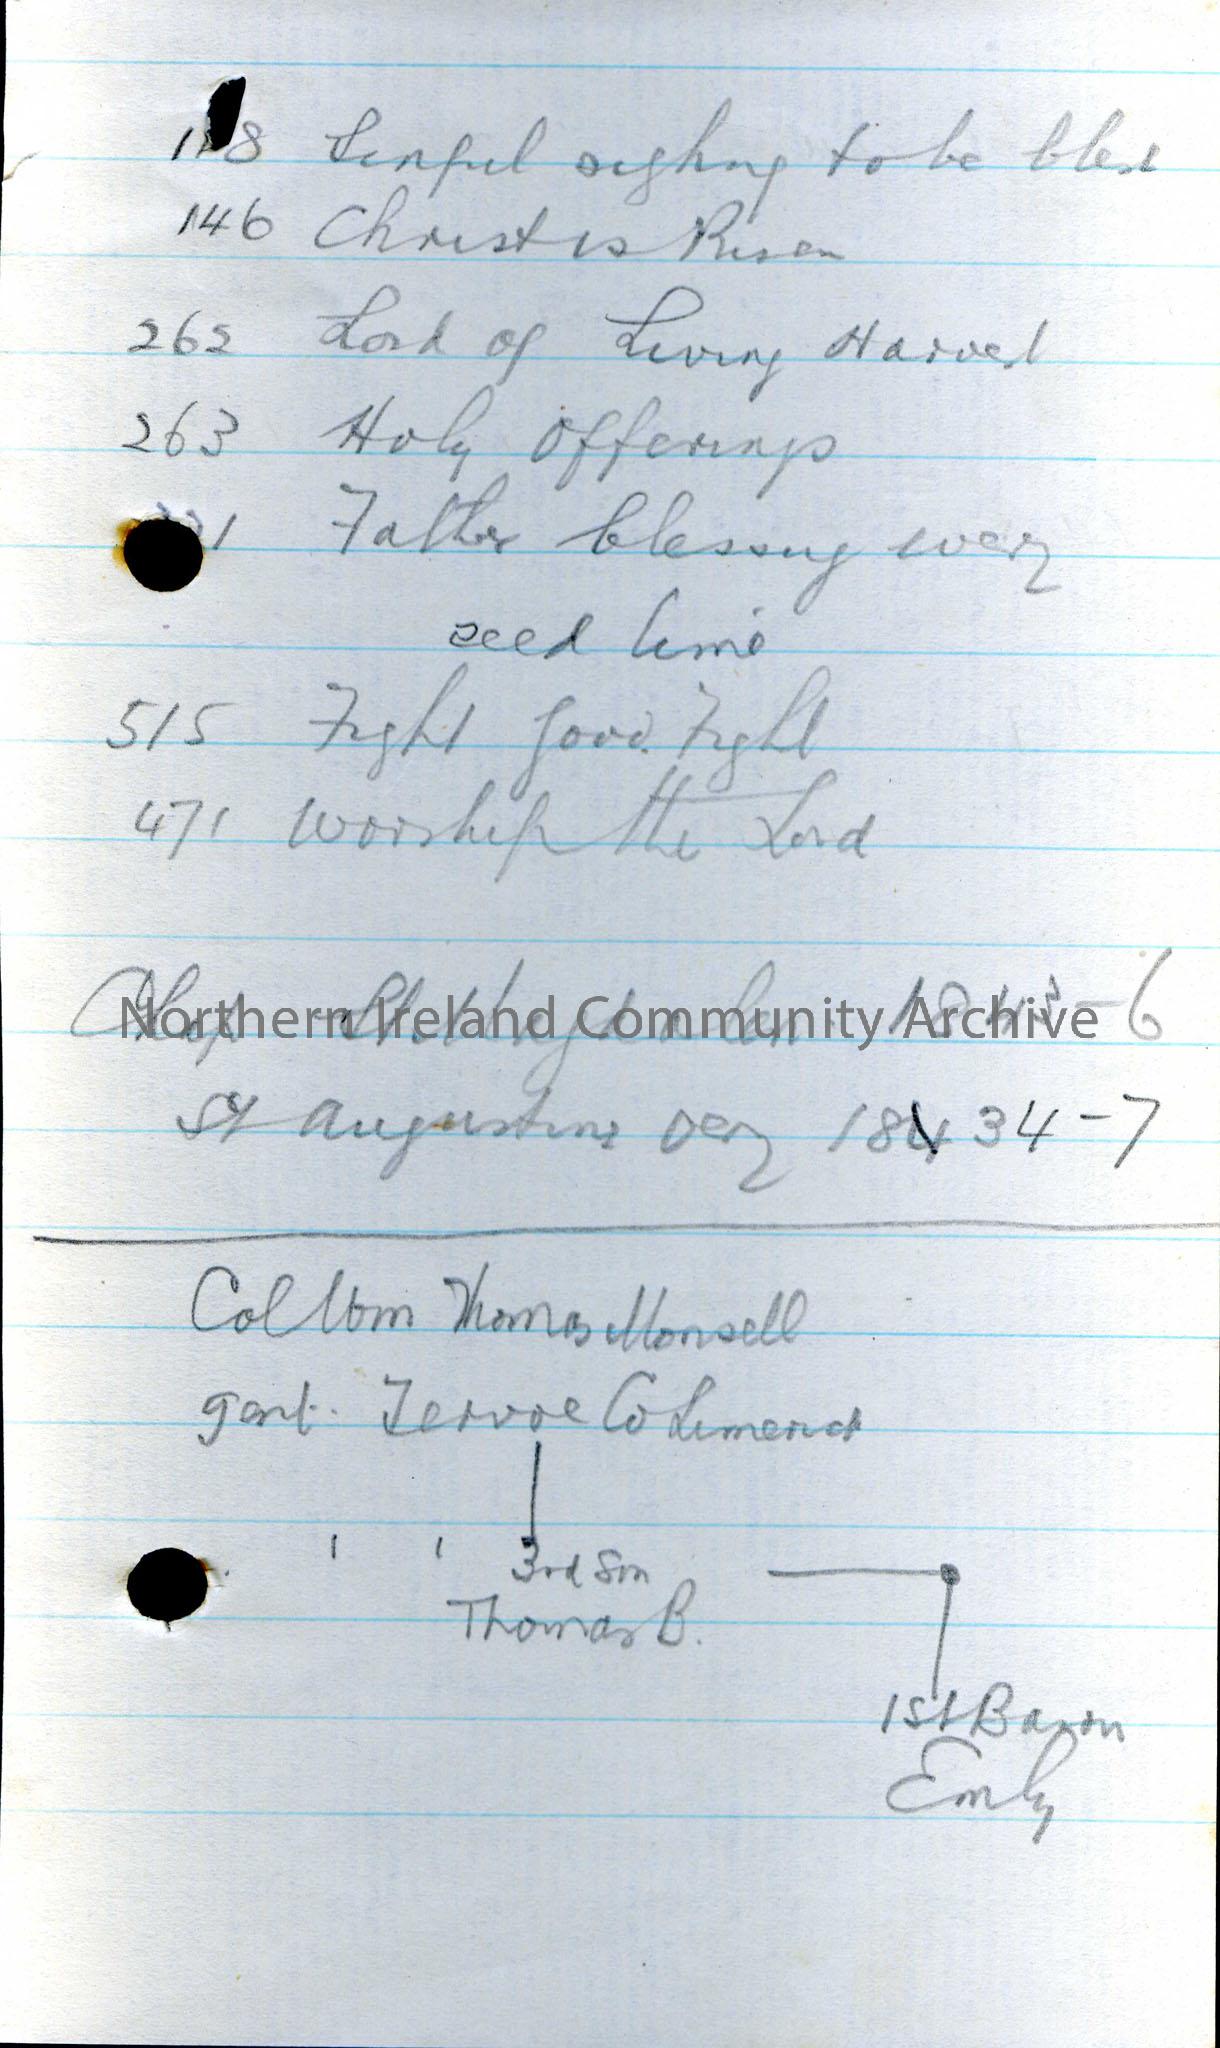 118 Sinful sighing to be blest
146 Christ is Risen
262 Lord of Living Harvest
263 Holy Offerings
331 Father blessing every
seed time
515 Fight good Fight
471 Worship the Lord
Northern Ireland Community Archive
184 -6
St Augustine Derry 18 34-7
Col Wm Thomas Monsell
gent. Tervoe Co Limerick
3rd Son
Thomas B.
1st Baron
Emly